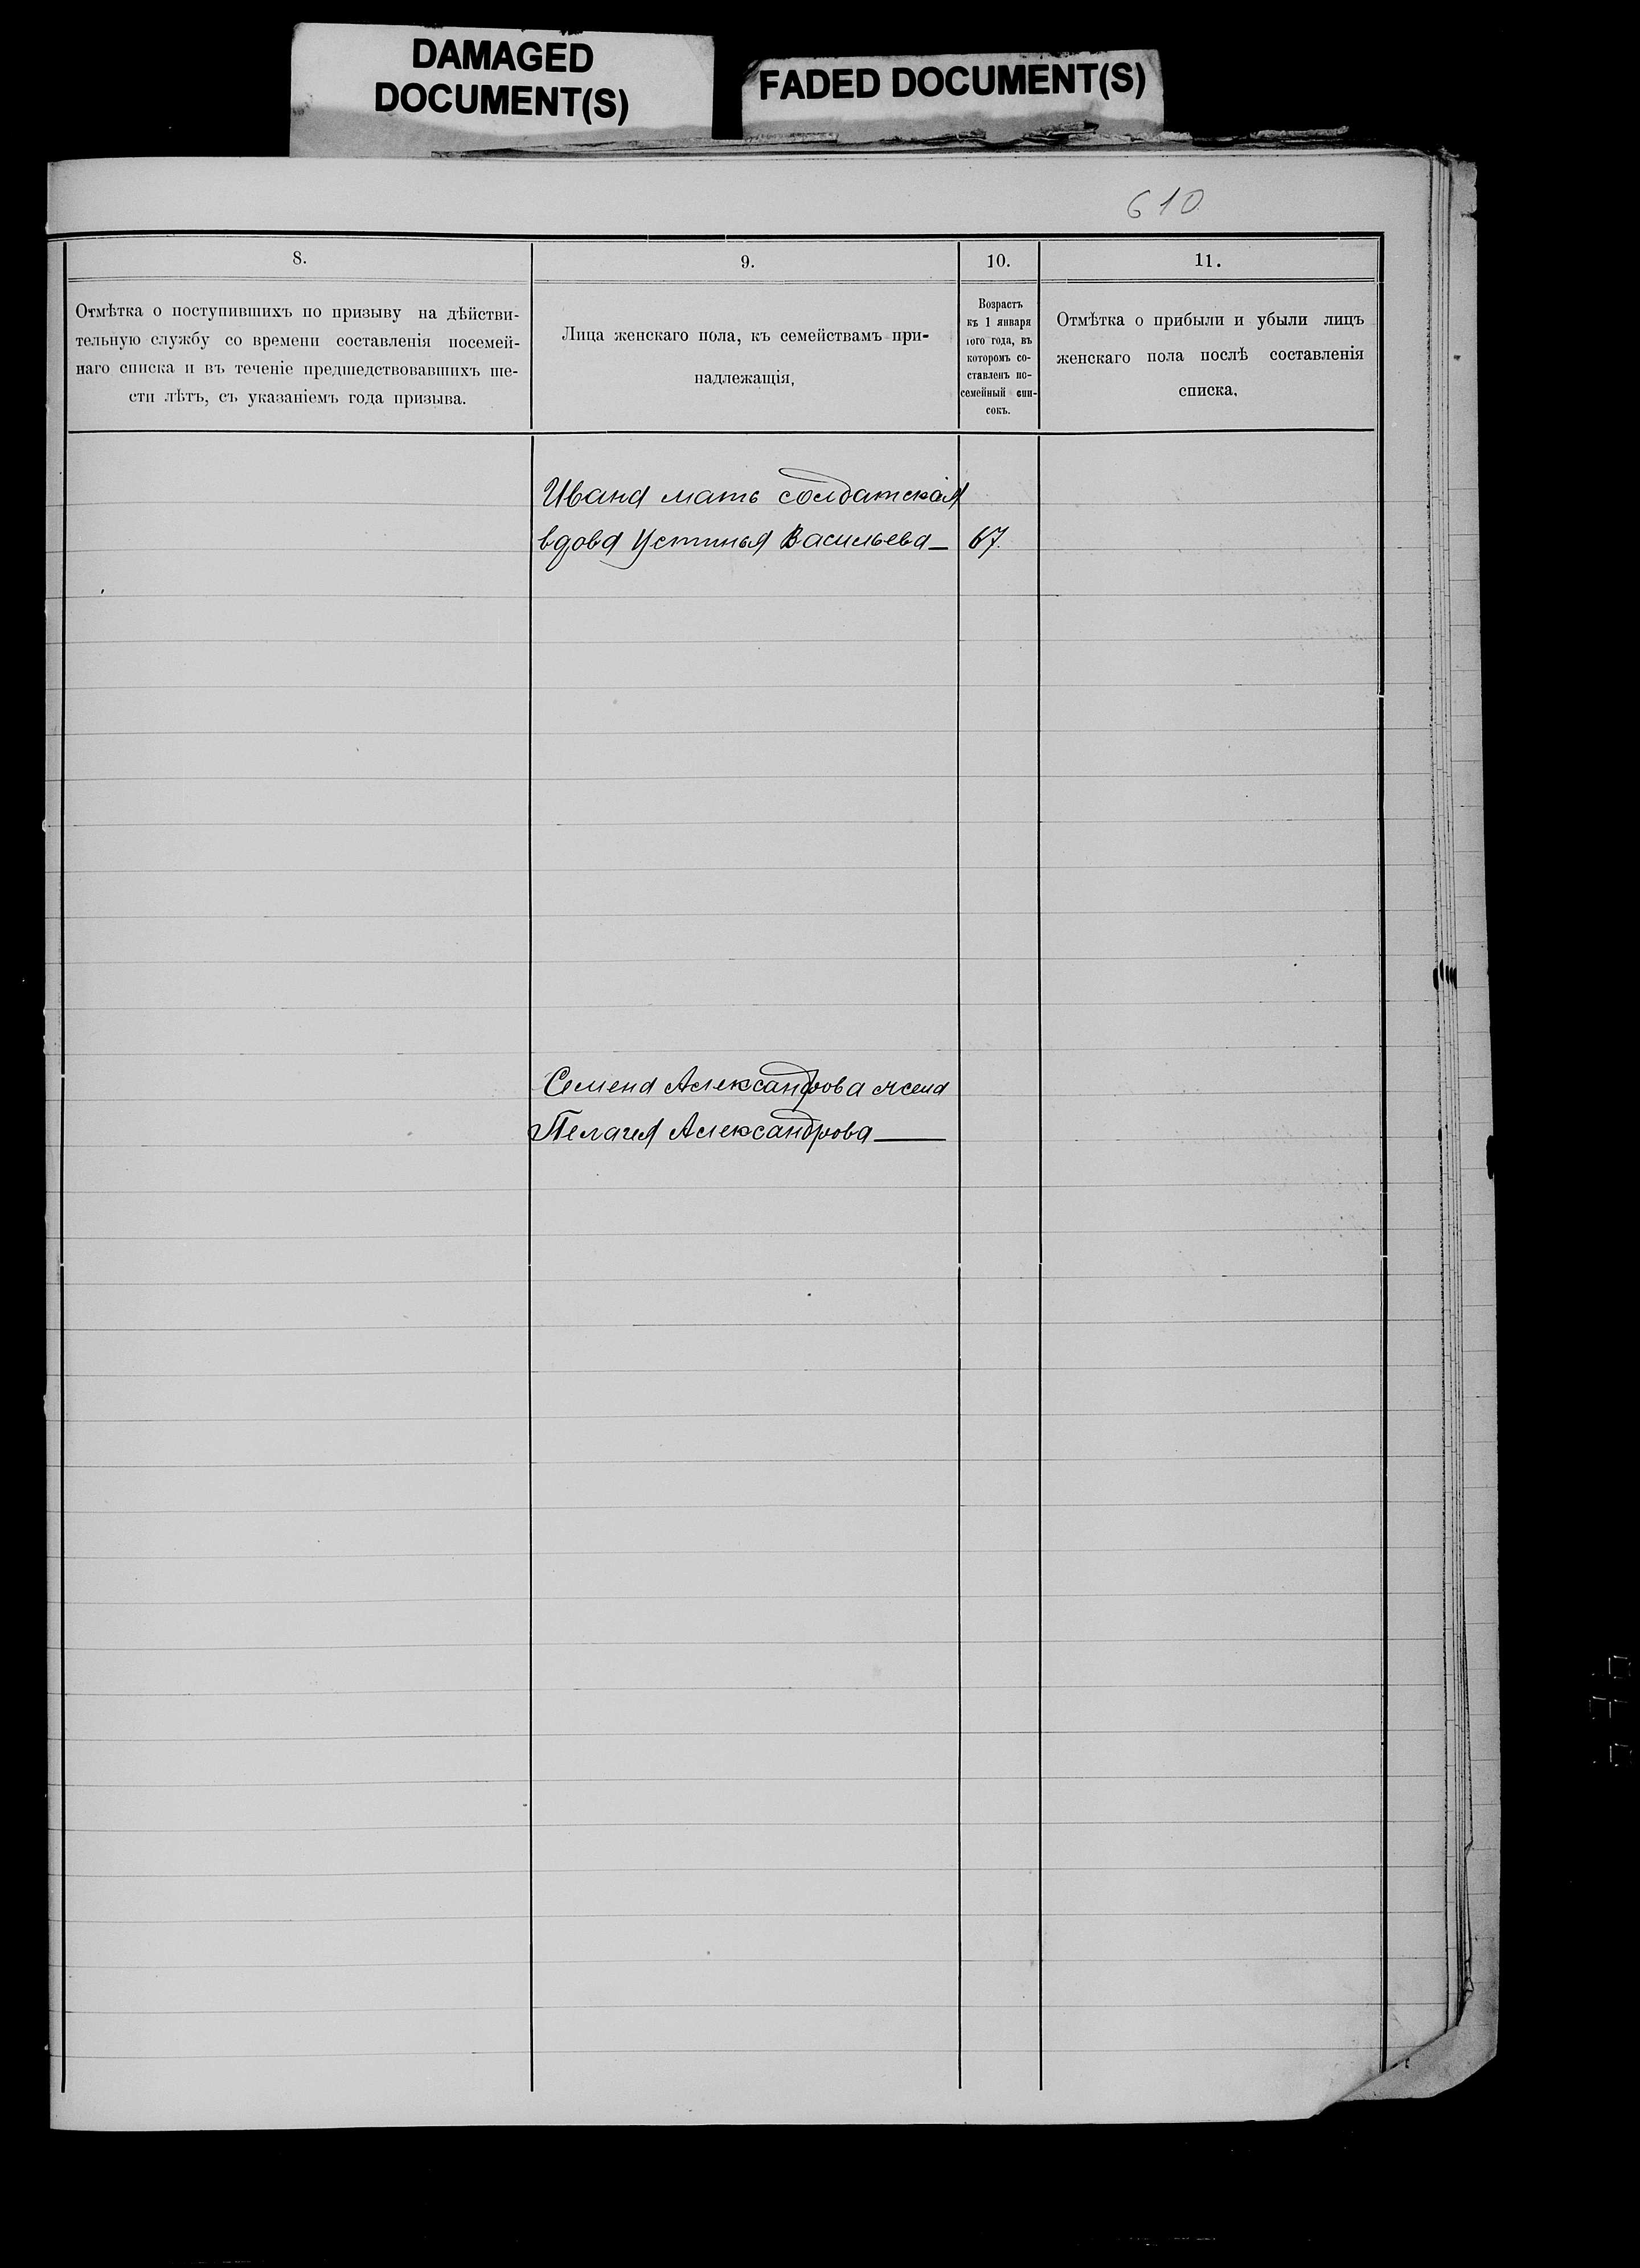 DAMAGED
DOCUMENT(S)
FADED DOCUMENT(S)
610
8.
9.
10.
11.
Отмѣтка о поступившихъ по призыву на дѣйстви-
тельную службу со времени составленія посемей-
наго списка и въ теченіе предшедствовавшихъ ше-
сти лѣтъ, съ указаніемъ года призыва.
Лица женскаго пола, къ семействамъ при-
надлежащія,
Возрастъ
къ 1 января
того года, въ
которомъ со-
ставленъ по-
семейный спи-
сокъ.
Отмѣтка о прибыли и убыли лицъ
женскаго пола послѣ составленія
списка,
Ивана мать солдатская
вдова Устинья Васильева — 67.
Семена Александрова жена
Пелагея Александрова —